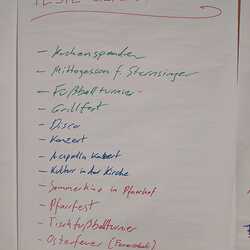 - Kuchenspenden
- Mittagessen f. Sternsinger
- Fußballturnier
- Grillfest
- Disco
- Konzert
- Acapella Konzert
- Kultur in der Kirche
- Sommerkino im Pfarrhof
- Pfarrfest
- Tischfußballturnier
- Osterfeuer